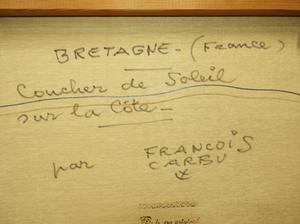 BRETAGNE - (France)
Coucher de Soleil
sur la Côte -
par FRANCOIS
CARBU